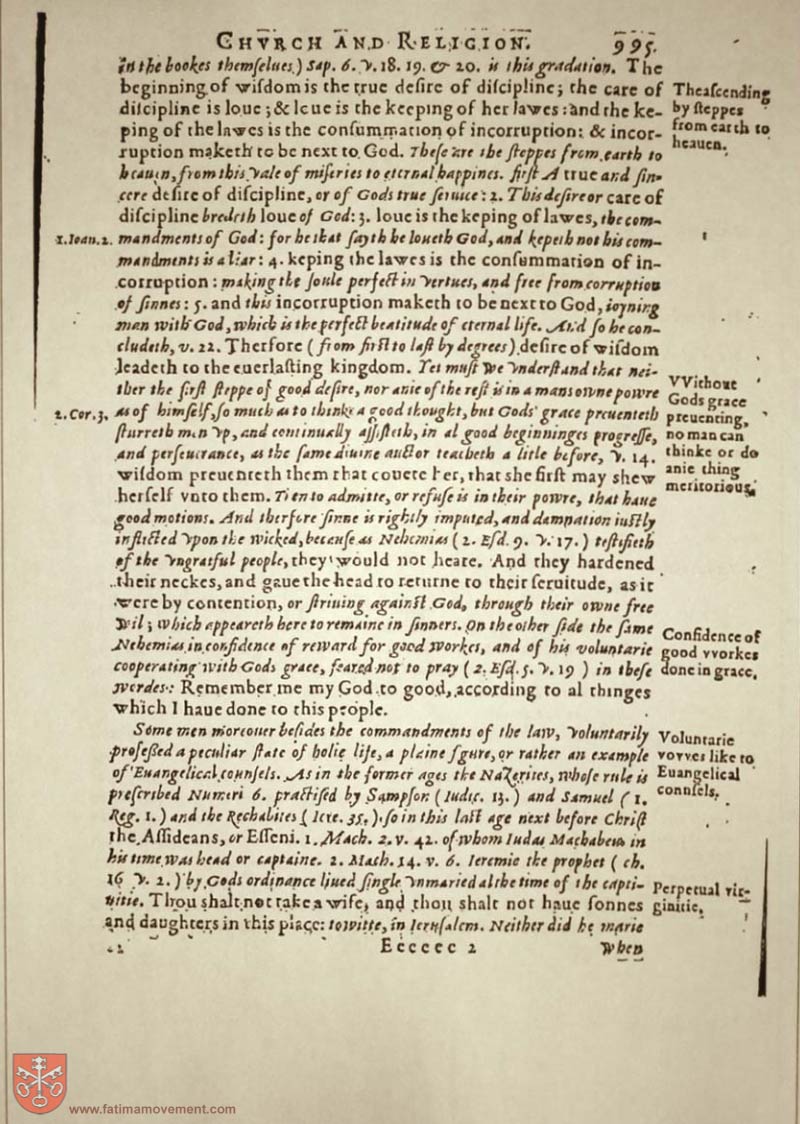 CHVRCH AND RELIGION. 995.
in the bookes themſelues) Sap. 6. v. 18. 19. & 20. is this gradation. The
beginning of wiſdom is the true deſire of diſcipline; the care of
diſcipline is loue; & loue is the keeping of her lawes: and the ke-
ping of the lawes is the conſummation of incorruption: & incor-
ruption maketh to be next to God. Theſe are the ſteppes from earth to
heauen, from this vale of miſeries to eternal happines. firſt A true and ſin-
cere deſire of diſcipline, or of Gods true ſeruice: 2. This deſire or care of
diſcipline bredeth loue of God: 3. loue is the keping of lawes, the com-
mandments of God: for he that ſayth he loueth God, and kepeth not his com-
mandments is a liar: 4. keping the lawes is the conſummation of in-
corruption: making the ſoule perfect in vertues, and free from corruption
of ſinnes: 5. and this incorruption maketh to be next to God, ioyning
man with God, which is the perfect beatitude of eternal life. And ſo he con-
cludeth, v. 22. Therfore (from firſt to laſt by degrees) deſire of wiſdom
leadeth to the euerlaſting kingdom. Yet muſt we vnderſtand that nei-
ther the firſt ſteppe of good deſire, nor anie of the reſt is in a mans owne powre
as of himſelf, ſo much as to thinke a good thought, but Gods grace preuenteth
ſturreth men vp, and continually aſſiſteth, in al good beginninges progreſſe,
and perſeuerance, as the ſame diuine auctor teacheth a litle before, v. 14.
wiſdom preuenteth them that couete her, that she firſt may shew
herſelf vnto them. Then to admitte, or refuſe is in their powre, that haue
good motions. And therfore ſinne is rightly imputed, and damnation iuſtly
inflicted vpon the wicked, becauſe as Nehemias (2. Eſd. 9. v. 17.) teſtifieth
of the vngratful people, they would not heare. And they hardened
their neckes, and gaue the head to returne to their ſeruitude, as it
were by contention, or ſtriuing againſt God, through their owne free
wil; which appeareth here to remaine in ſinners. On the other ſide the ſame
Nehemias in confidence of reward for good workes, and of his voluntarie
cooperating with Gods grace, feared not to pray (2. Eſd. 5. v. 19) in theſe
wordes: Remember me my God to good, according to al thinges
which I haue done to this people.
Some men moreouer beſides the commandments of the law, voluntarily
profeſſed a peculiar ſtate of holie life, a plaine figure, or rather an example
of Euangelical counſels. As in the former ages the Nazerites, whoſe rule is
preſcribed Numeri 6. practiſed by Sampſon (Iudic. 13.) and Samuel (1.
Reg. 1.) and the Rechabites (Iere. 35.) ſo in this laſt age next before Chriſt
the Aſſideans, or Eſſeni. 1. Mach. 2. v. 42. of whom Iudas Machabeus in
his time was head or captaine. 2. Mach. 14. v. 6. Ieremie the prophet (ch.
16 v. 2.) by Gods ordinance liued ſingle vnmaried al the time of the capti-
uitie. Thou shalt not take a wife, and thou shalt not haue ſonnes
and daughters in this place: towitte, in Ieruſalem. Neither did he marie
Eeeeee 2 when
1. Ioan. 2.
2. Cor. 3.
The aſcending
by ſteppes
from earth to
heauen.
VVithout
Gods grace
preuenting,
no man can
thinke or do
anie thing
meritorious.
Confidence of
good vvorkes
done in grace.
Voluntarie
vovves like to
Euangelical
counſels.
Perpetual vir-
ginitie.
www.fatimamovement.com